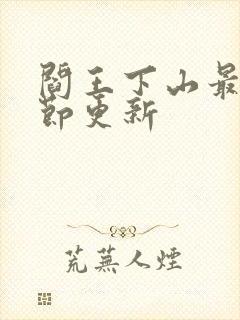 閻王下山最
節更新
荒蕪人煙